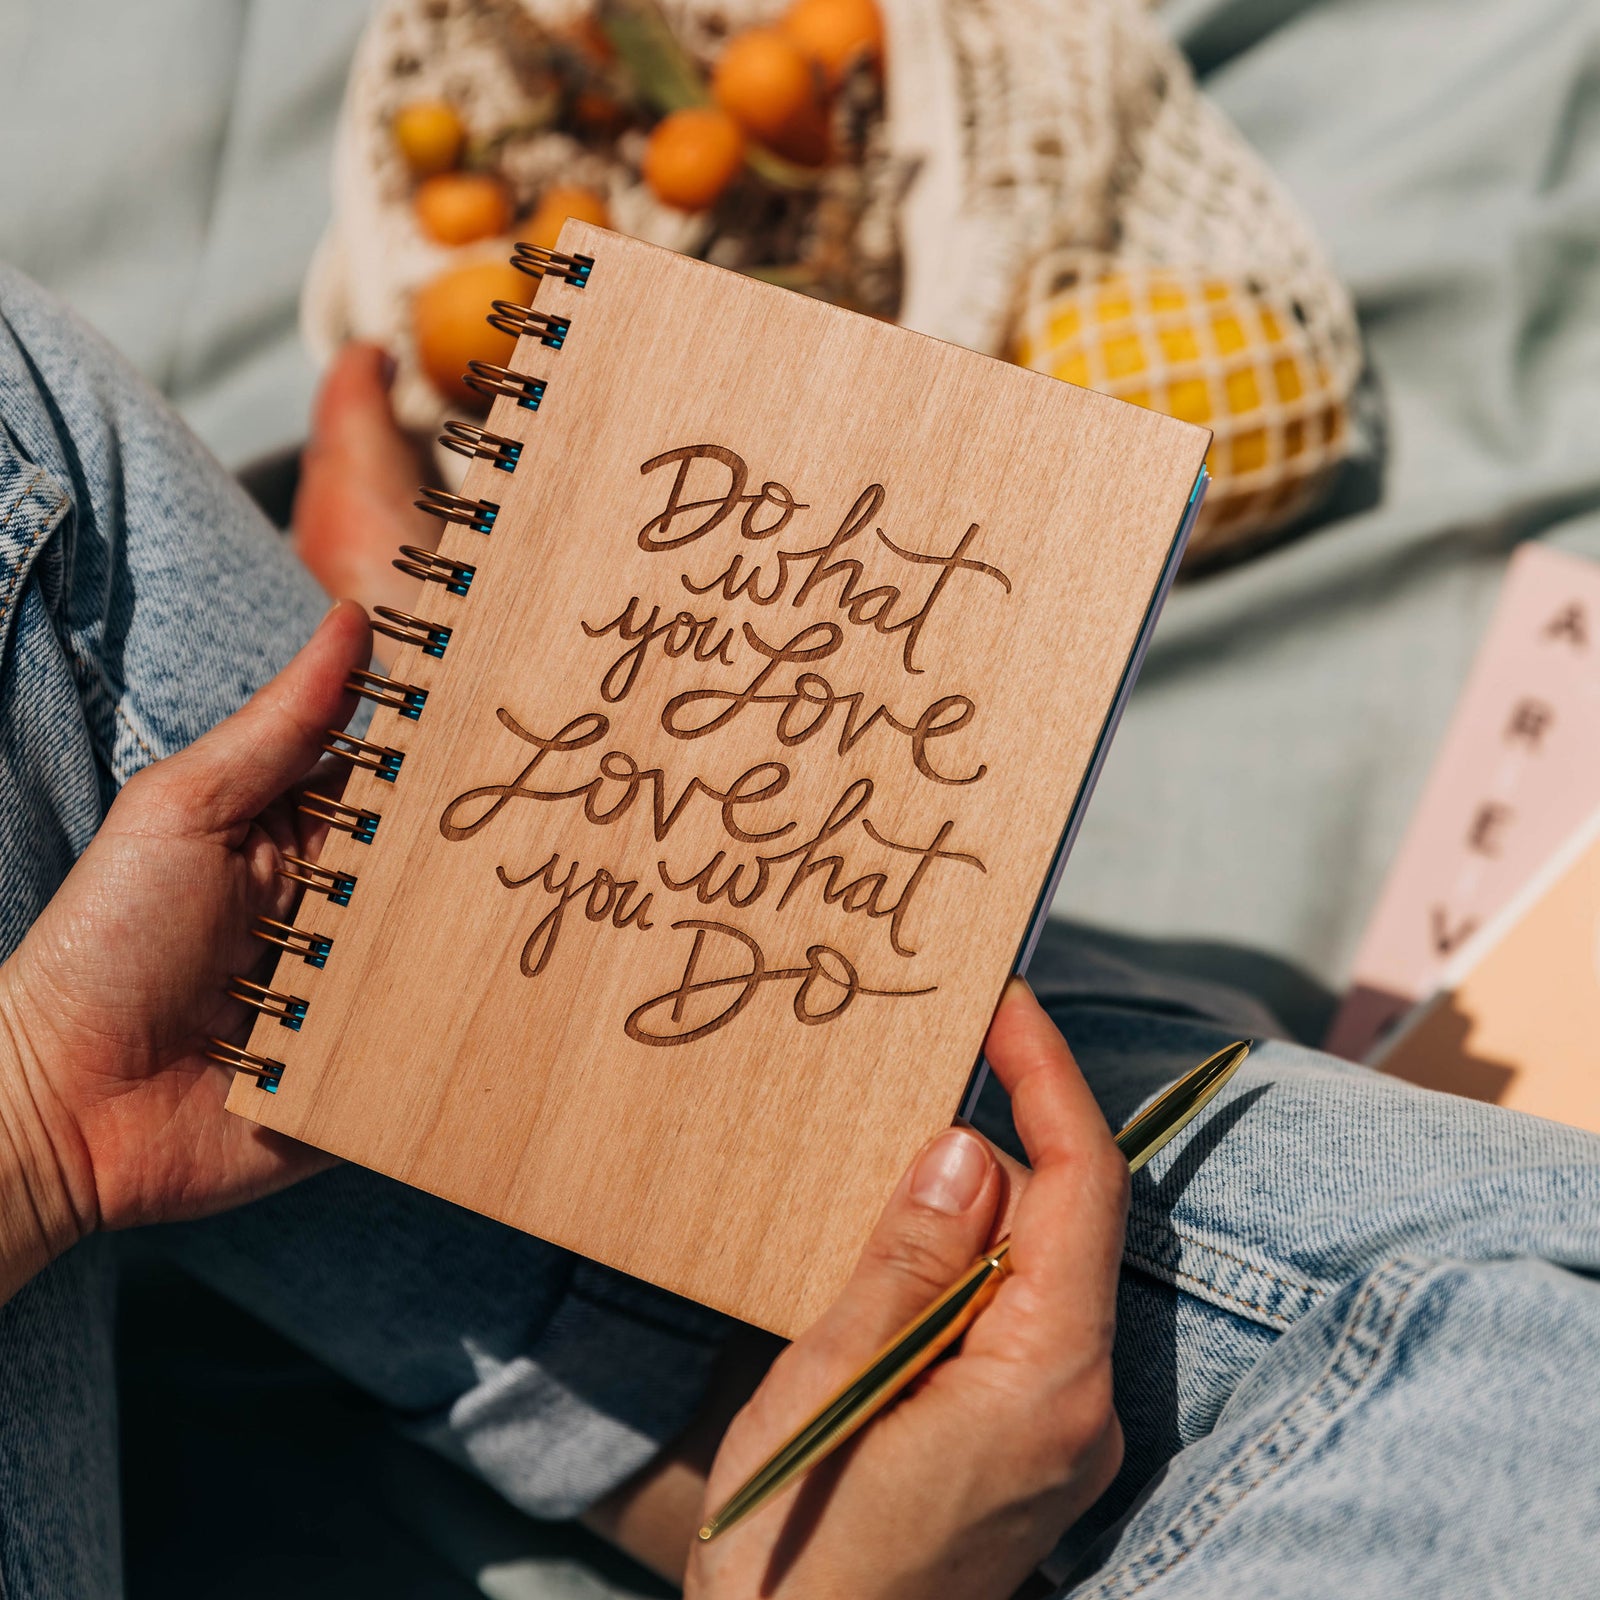 Do
what
you Love
Love
you what
Do
A
R
E
V